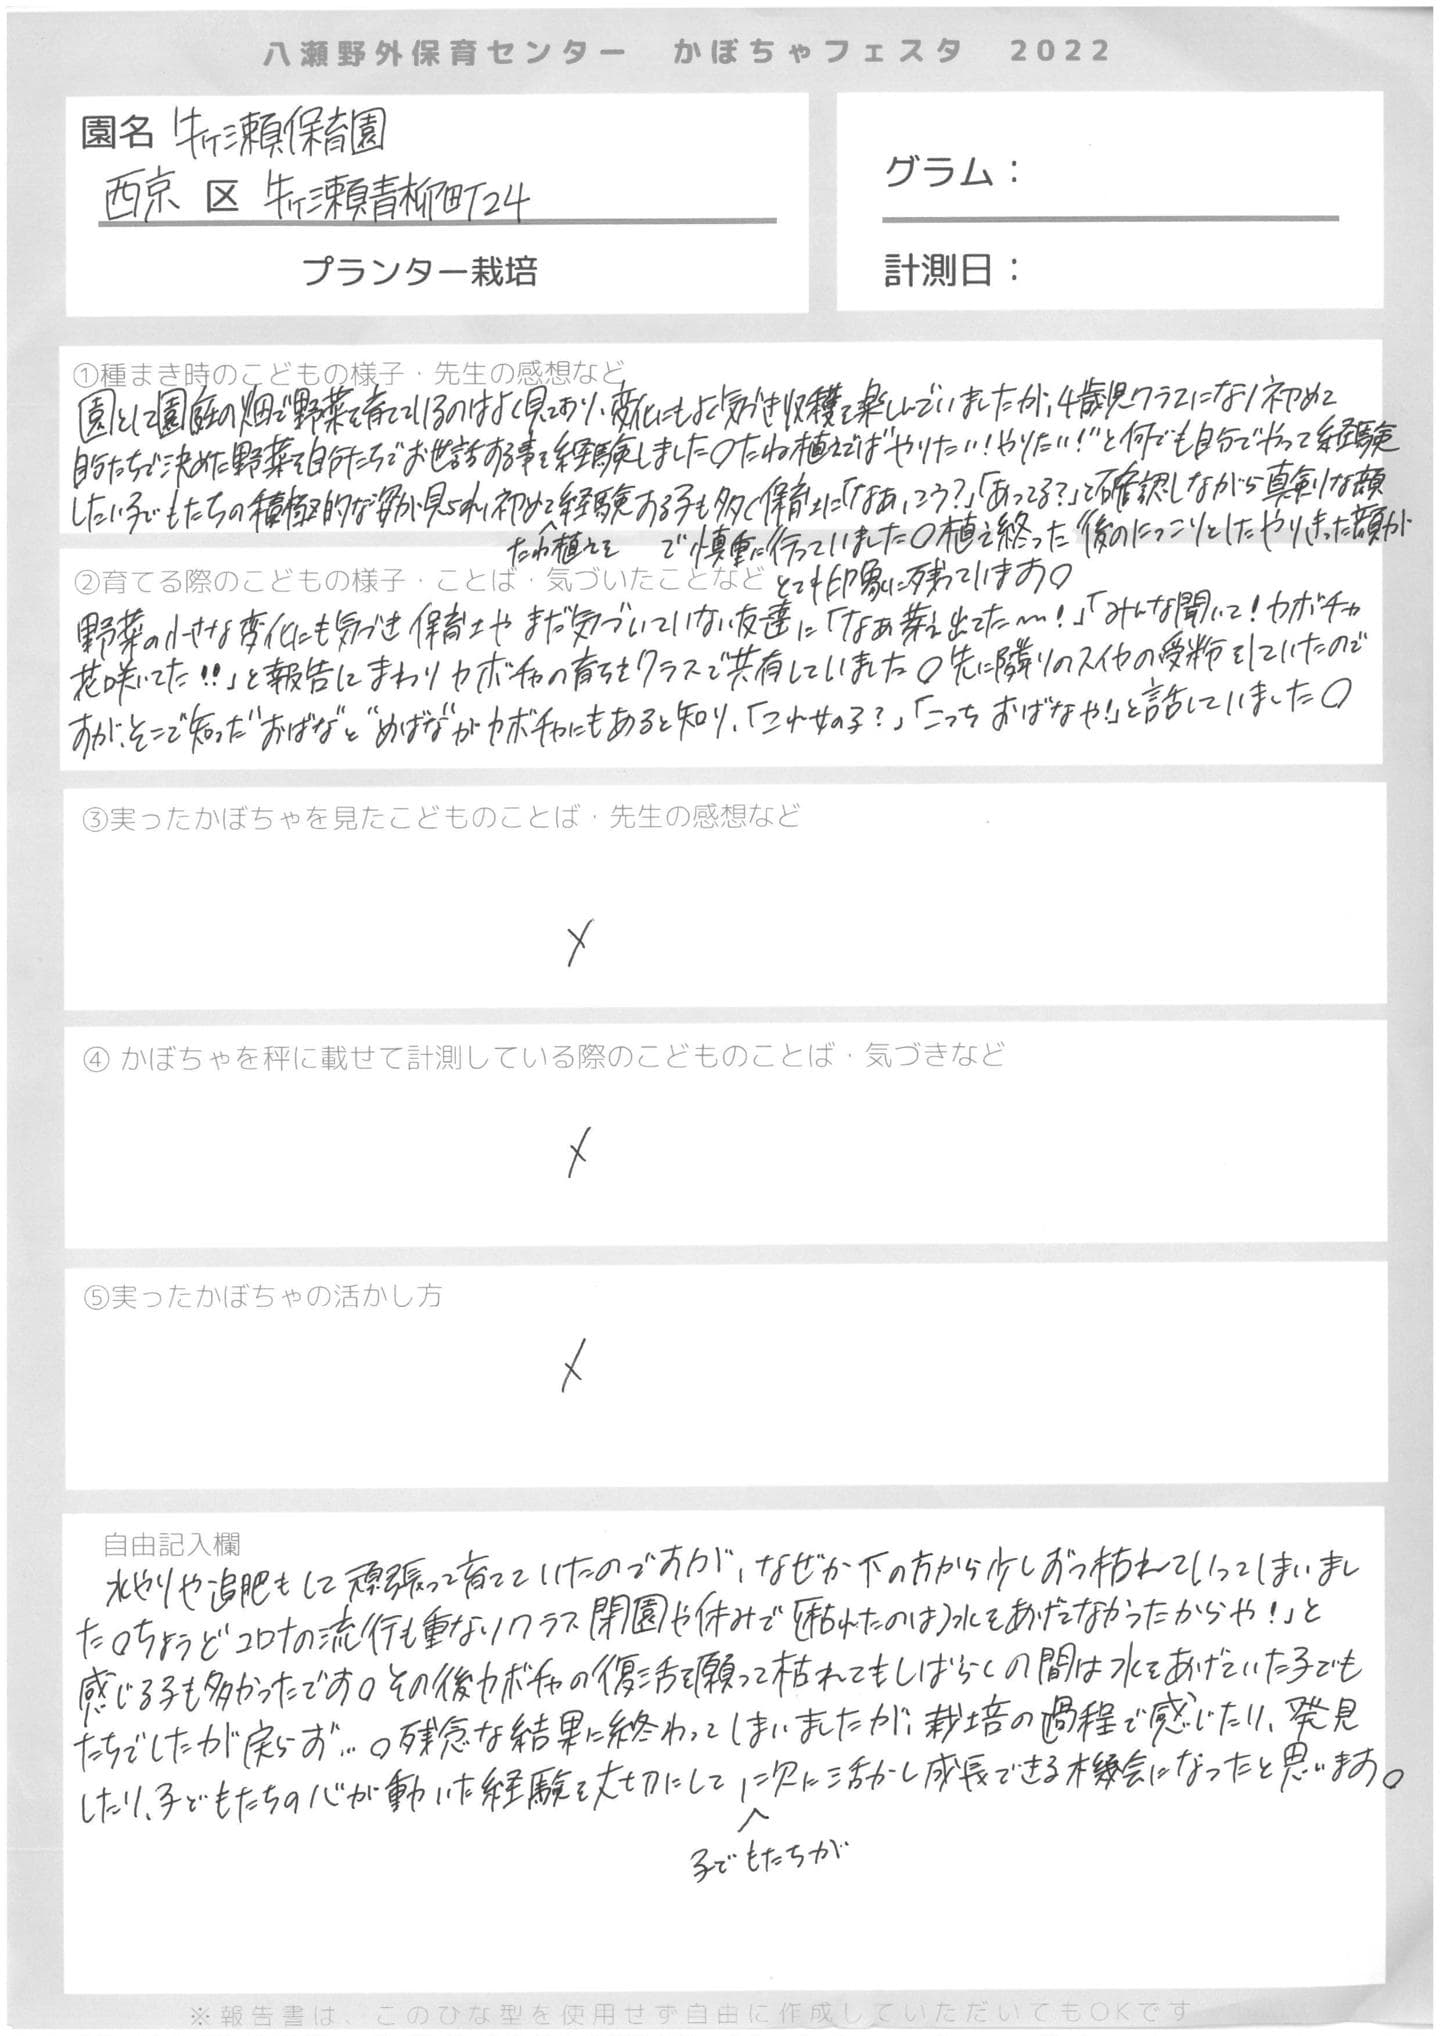 八瀬野外保育センター　かぼちゃフェスタ　2022
園名 牛ヶ瀬保育園
西京 区 牛ヶ瀬青柳町24
プランター栽培
グラム：
計測日：
①種まき時のこどもの様子・先生の感想など
園として園庭の畑で野菜を育てているのはよく見ており、変化にもよく気づき収穫を楽しんでいましたが、4歳児クラスになり初めて
自分たちで決めた野菜を自分たちでお世話する事を経験しました。たね植えでは"やりたい！やりたい！"と何でも自分でやって経験
したい子どもたちの積極的な姿が見られ、初めて経験する子も多く保育士に「なあ、こう？」「あってる？」と確認しながら真剣な顔
たね植えを　で慎重に行っていました。植え終った後のにっこりとしたやりきった顔が
とても印象に残っています。
②育てる際のこどもの様子・ことば・気づいたことなど
野菜の小さな変化にも気づき保育士やまだ気づいていない友達に「なぁ芽え出てた〜！」「みんな聞いて！カボチャ
花咲いてた!!」と報告しまわりカボチャの育ちをクラスで共有していました。先に隣りのスイカの受粉をしていたので
すが、そこで知った"おばな"と"めばな"がカボチャにもあると知り、「これ女の子？」「こっちおばなや！」と話していました。
③実ったかぼちゃを見たこどものことば・先生の感想など
④ かぼちゃを秤に載せて計測している際のこどものことば・気づきなど
⑤実ったかぼちゃの活かし方
自由記入欄
水やりや追肥もして頑張って育てていたのですが、なぜか下の方から少しずつ枯れていってしまいまし
た。ちょうどコロナの流行も重なりクラス閉園や休みで「(枯れたのは)水をあげてなかったからや！」と
感じる子も多かったです。その後カボチャの復活を願って枯れてもしばらくの間は水をあげていた子ども
たちでしたが戻らず…。残念な結果に終わってしまいましたが、栽培の過程で感じたり、発見
したり、子どもたちの心が動いた経験を大切にして、次に活かし成長できる機会になったと思います。
子どもたちが
※報告書は、このひな型を使用せず自由に作成していただいてもOKです